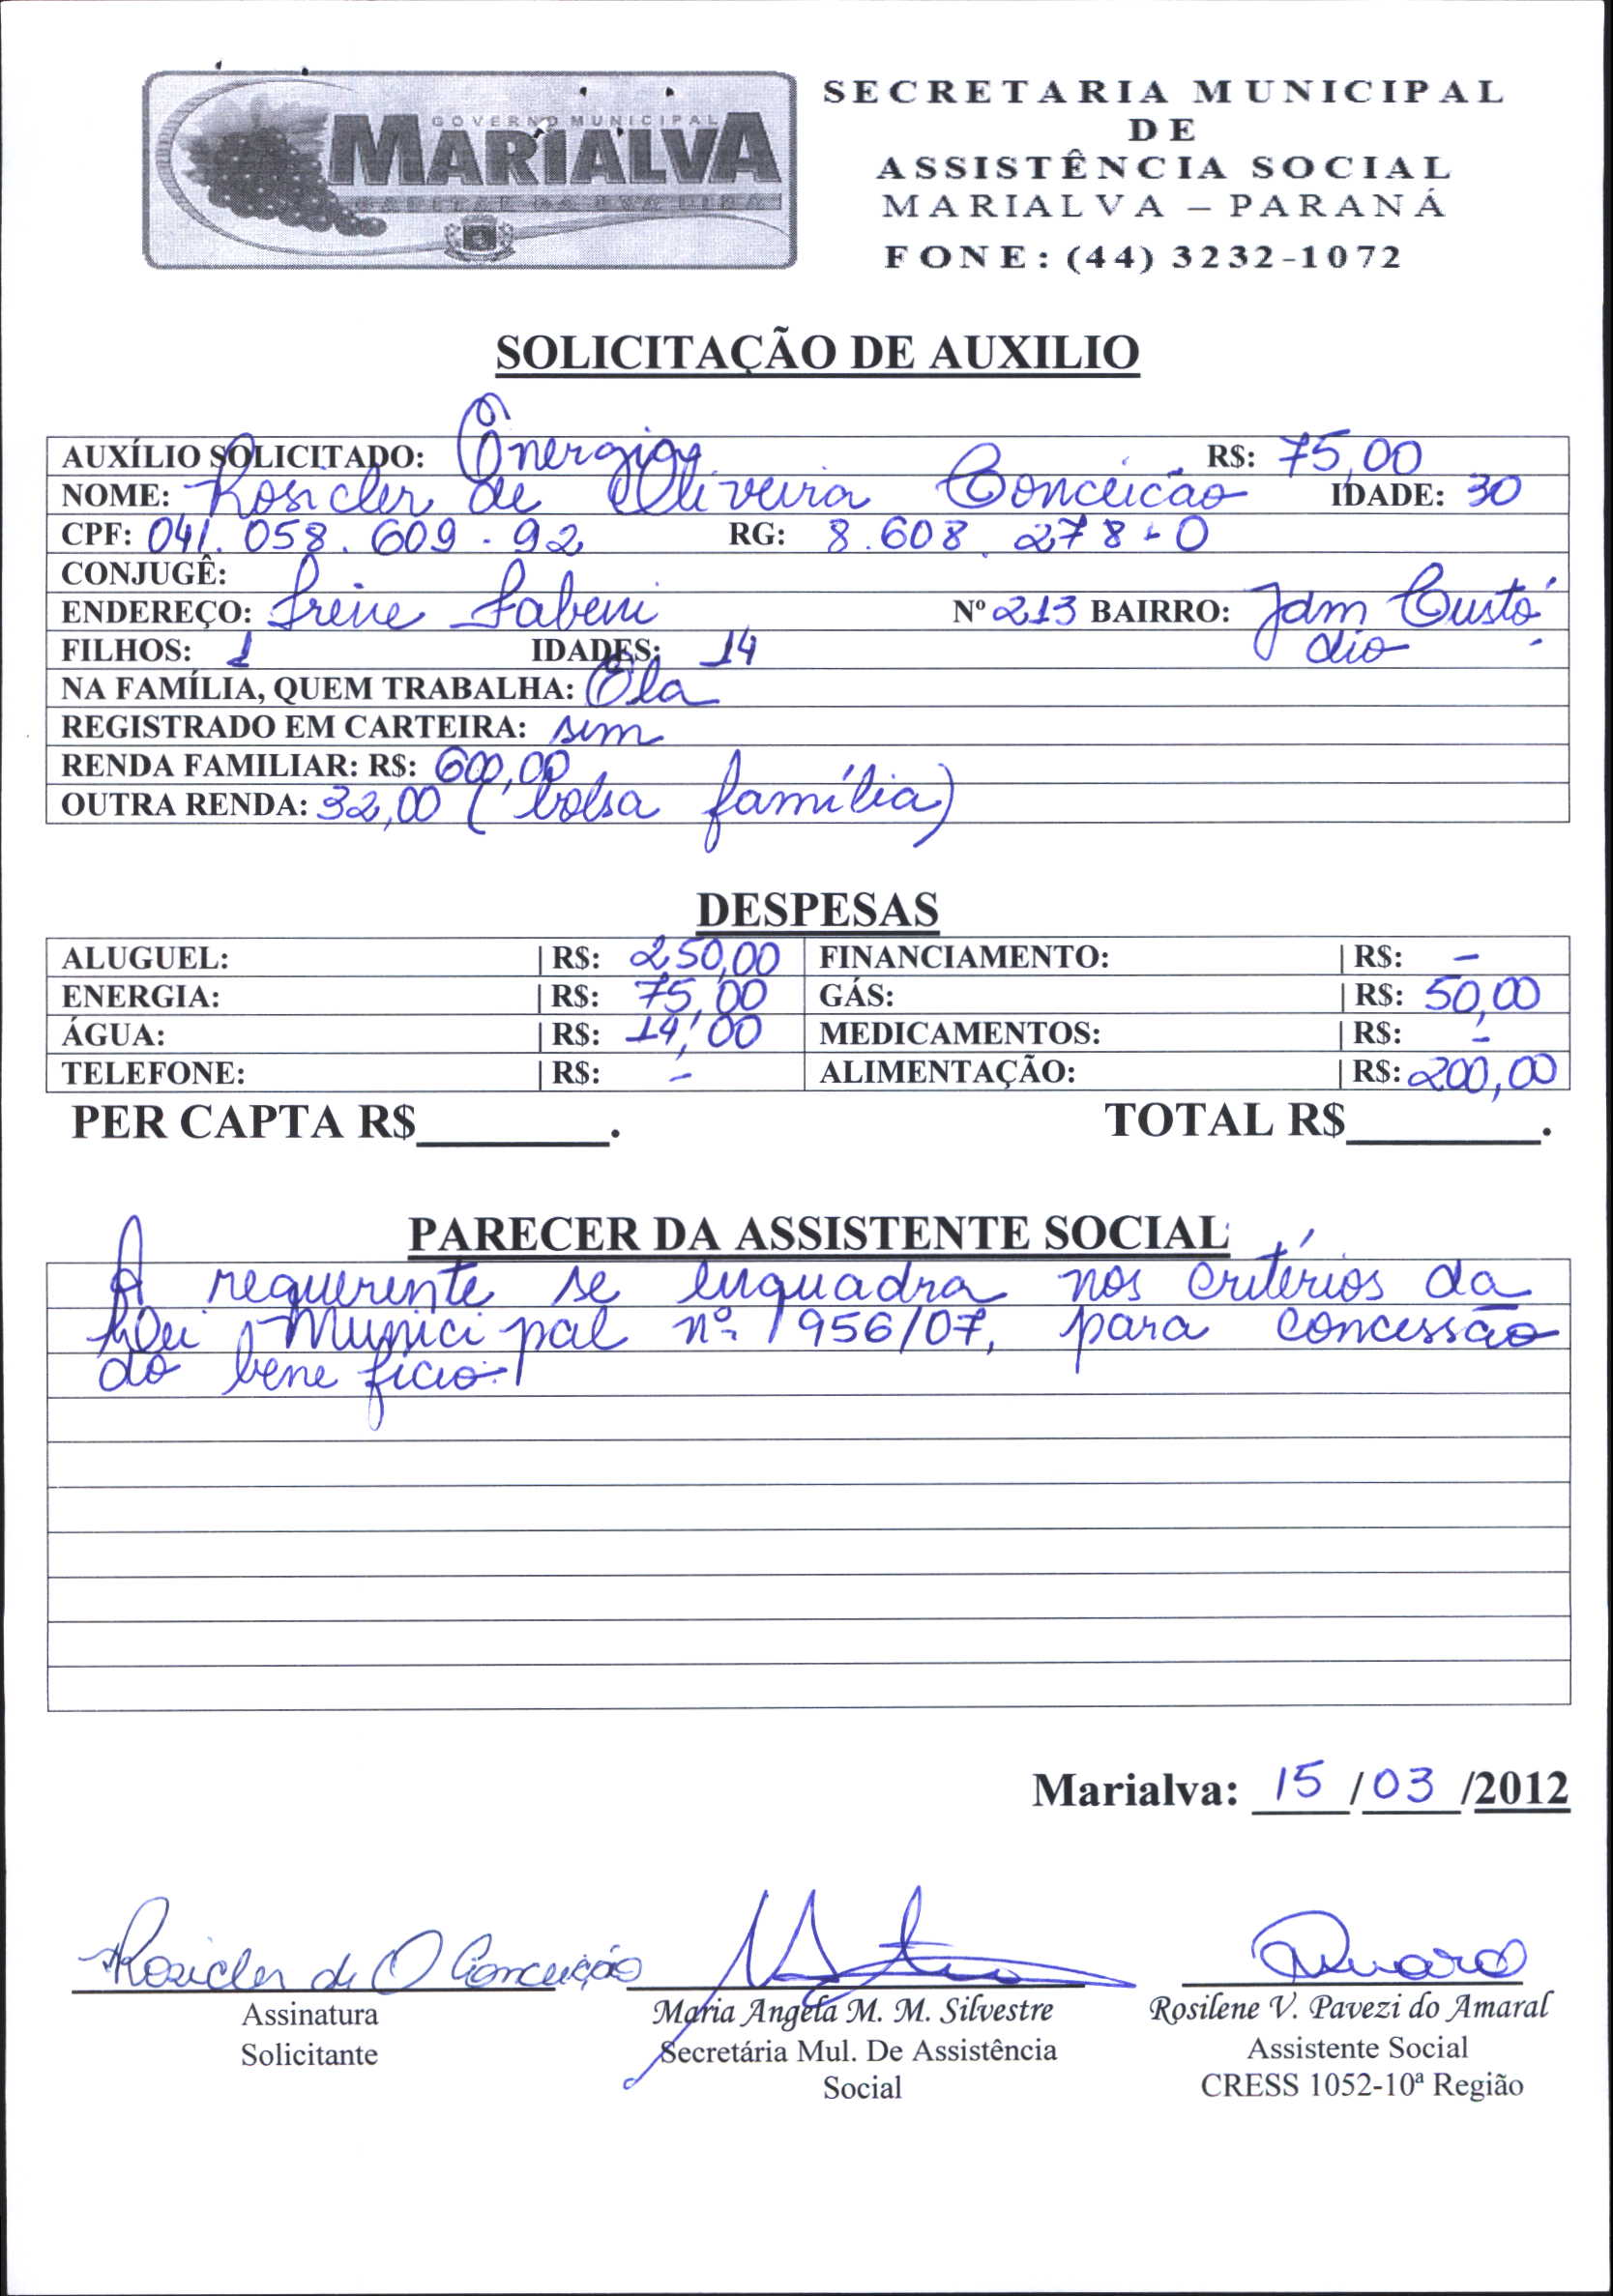 GOVERNO MUNICIPAL
MARIALVA
CAPITAL DA UVA FINA
SECRETARIA MUNICIPAL
DE
ASSISTÊNCIA SOCIAL
MARIALVA – PARANÁ
FONE: (44) 3232-1072
SOLICITAÇÃO DE AUXILIO
AUXÍLIO SOLICITADO: Energia R$: 75,00
NOME: Rosicler de Oliveira Conceicão IDADE: 30
CPF: 041.058.609-92 RG: 8.608.278-0
CONJUGÊ:
ENDEREÇO: Irene Fabeni Nº 213 BAIRRO: Jdm Custó
FILHOS: 1 IDADES: 14 dio
NA FAMÍLIA, QUEM TRABALHA: Ela
REGISTRADO EM CARTEIRA: sim
RENDA FAMILIAR: R$: 600,00
OUTRA RENDA: 32,00 (bolsa família)
DESPESAS
ALUGUEL: | R$: 250,00 FINANCIAMENTO: | R$: -
ENERGIA: | R$: 75,00 GÁS: | R$: 50,00
ÁGUA: | R$: 14,00 MEDICAMENTOS: | R$: -
TELEFONE: | R$: - ALIMENTAÇÃO: | R$: 200,00
PER CAPTA R$________. TOTAL R$________.
PARECER DA ASSISTENTE SOCIAL
A requerente se enquadra nos critérios da
Lei Municipal nº 1956/07, para concessão
do benefício.
Marialva: 15/03/2012
Rosicler de O Conceição
Assinatura Maria Angela M. M. Silvestre Rosilene V. Pavezi do Amaral
Solicitante Secretária Mul. De Assistência Assistente Social
Social CRESS 1052-10ª Região